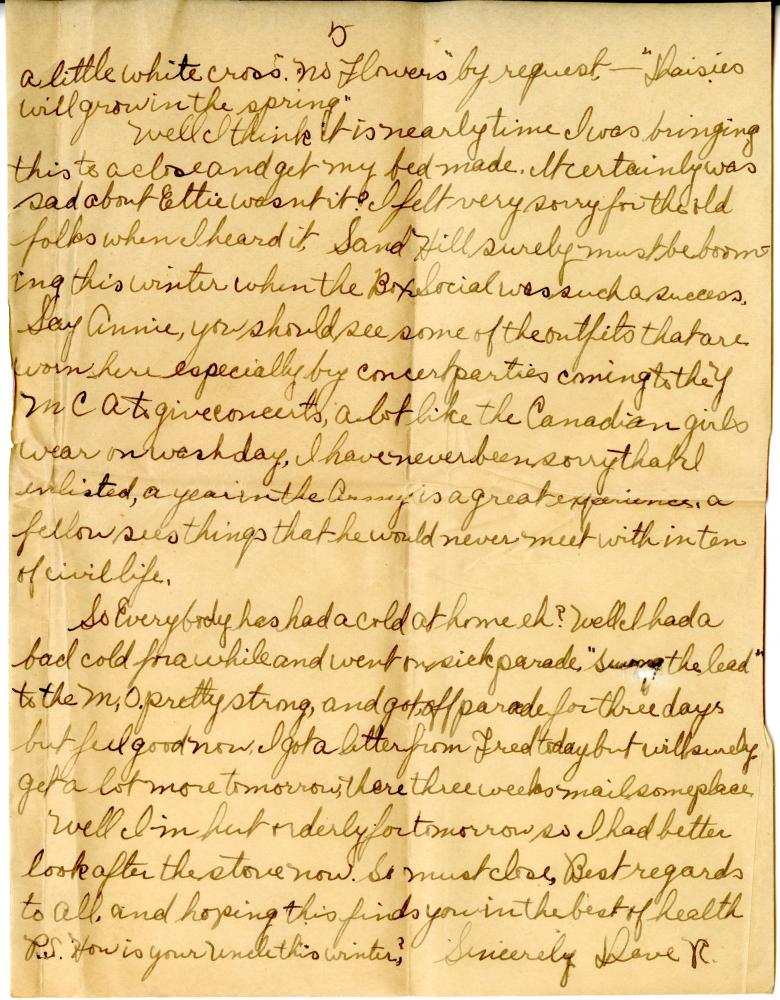 5
a little white cross". "No Flowers" by request. — "Daisies
will grow in the spring"
Well I think it is nearly time I was bringing
this to a close and get my bed made. It certainly was
sad about Ettie wasnt it? I felt very sorry for the old
folks when I heard it. Sand Hill surely must be boom-
ing this winter when the Box Social was such a success.
Say Annie, you should see some of the outfits that are
worn here especially by concert parties coming to the Y
M C A to give concerts, a lot like the Canadian girls
wear on wash day. I have never been sorry that I
enlisted, a year in the Army is a great experience. a
fellow sees things that he would never meet with in ten
of civil life.
So Everybody has had a cold at home eh? Well I had a
bad cold for a while and went on sick parade, "swung the lead"
to the M,O, pretty strong, and got off parade for three days
but feel good now. I got a letter from Fred today but will surely
get a lot more tomorrow, there three weeks mail someplace
Well I'm hut orderly for tomorrow so I had better
look after the stove now. So must close, Best regards
to all, and hoping this finds you in the best of health
P.S. How is your Uncle this winter? Sincerely Dave R.